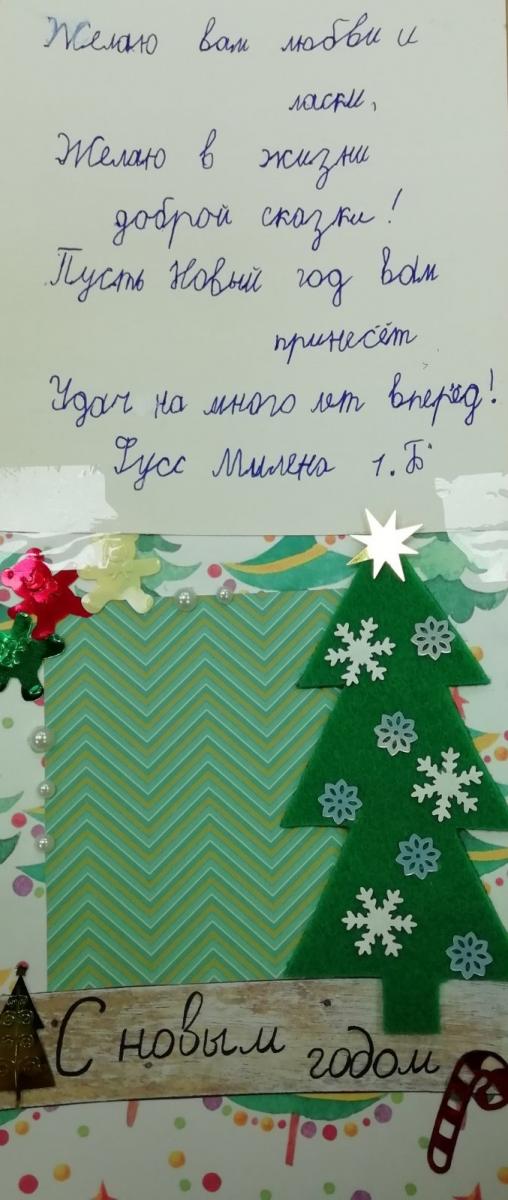 Желаю вам любви и
ласки,
Желаю в жизни
доброй сказки!
Пусть Новый год вам
принесёт
Удач на много лет вперёд!
Фусс Милена 1.Б
С новым годом